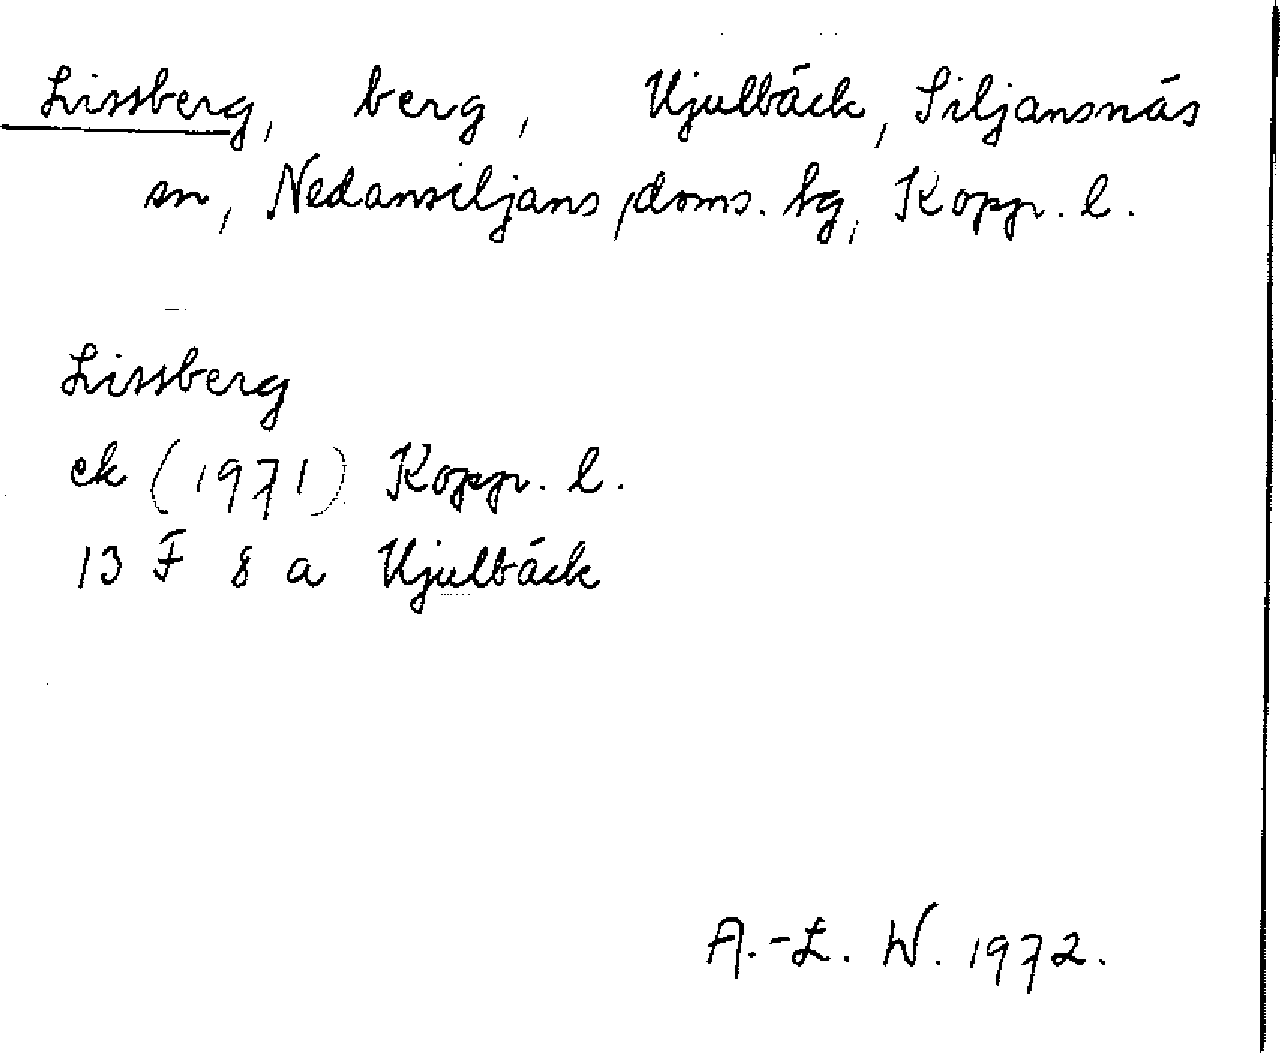 Lissberg, berg, Hjulbäck, Siljansnäs
sn, Nedansiljans doms. tg, Kopp. l.
Lissberg
ek (1971) Kopp. l.
13 F 8 a Hjulbäck
A.-L. W. 1972.